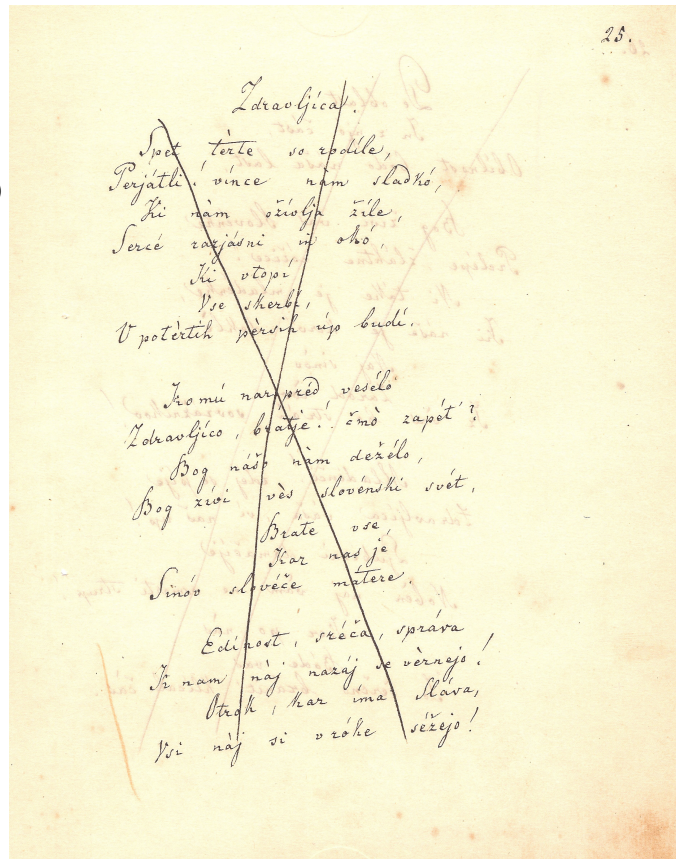 25.
Zdravljíca!.
Spet tèrte so rodíle,
Perjátli! vince nàm sladkó,
Ki nàm ožívlja žíle,
Sercé razjásni in okó,
Ki vtopí,
Vse skerbí,
V potèrtih pèrsih úp budí.
Komú narpréd vesélo
Zdravljíco, bratje!. čmò zapét'?
Bog nášo nàm deželo,
Bog žívi vès slovénski svét,
Bráte vse,
Kar nas je
Sinóv slovéče mátere.
Edínost, sréča, správa
K nam nàj nazáj se vèrnejo!
Otrók, kar íma Sláva,
Vsi nàj si v róke séžejo!